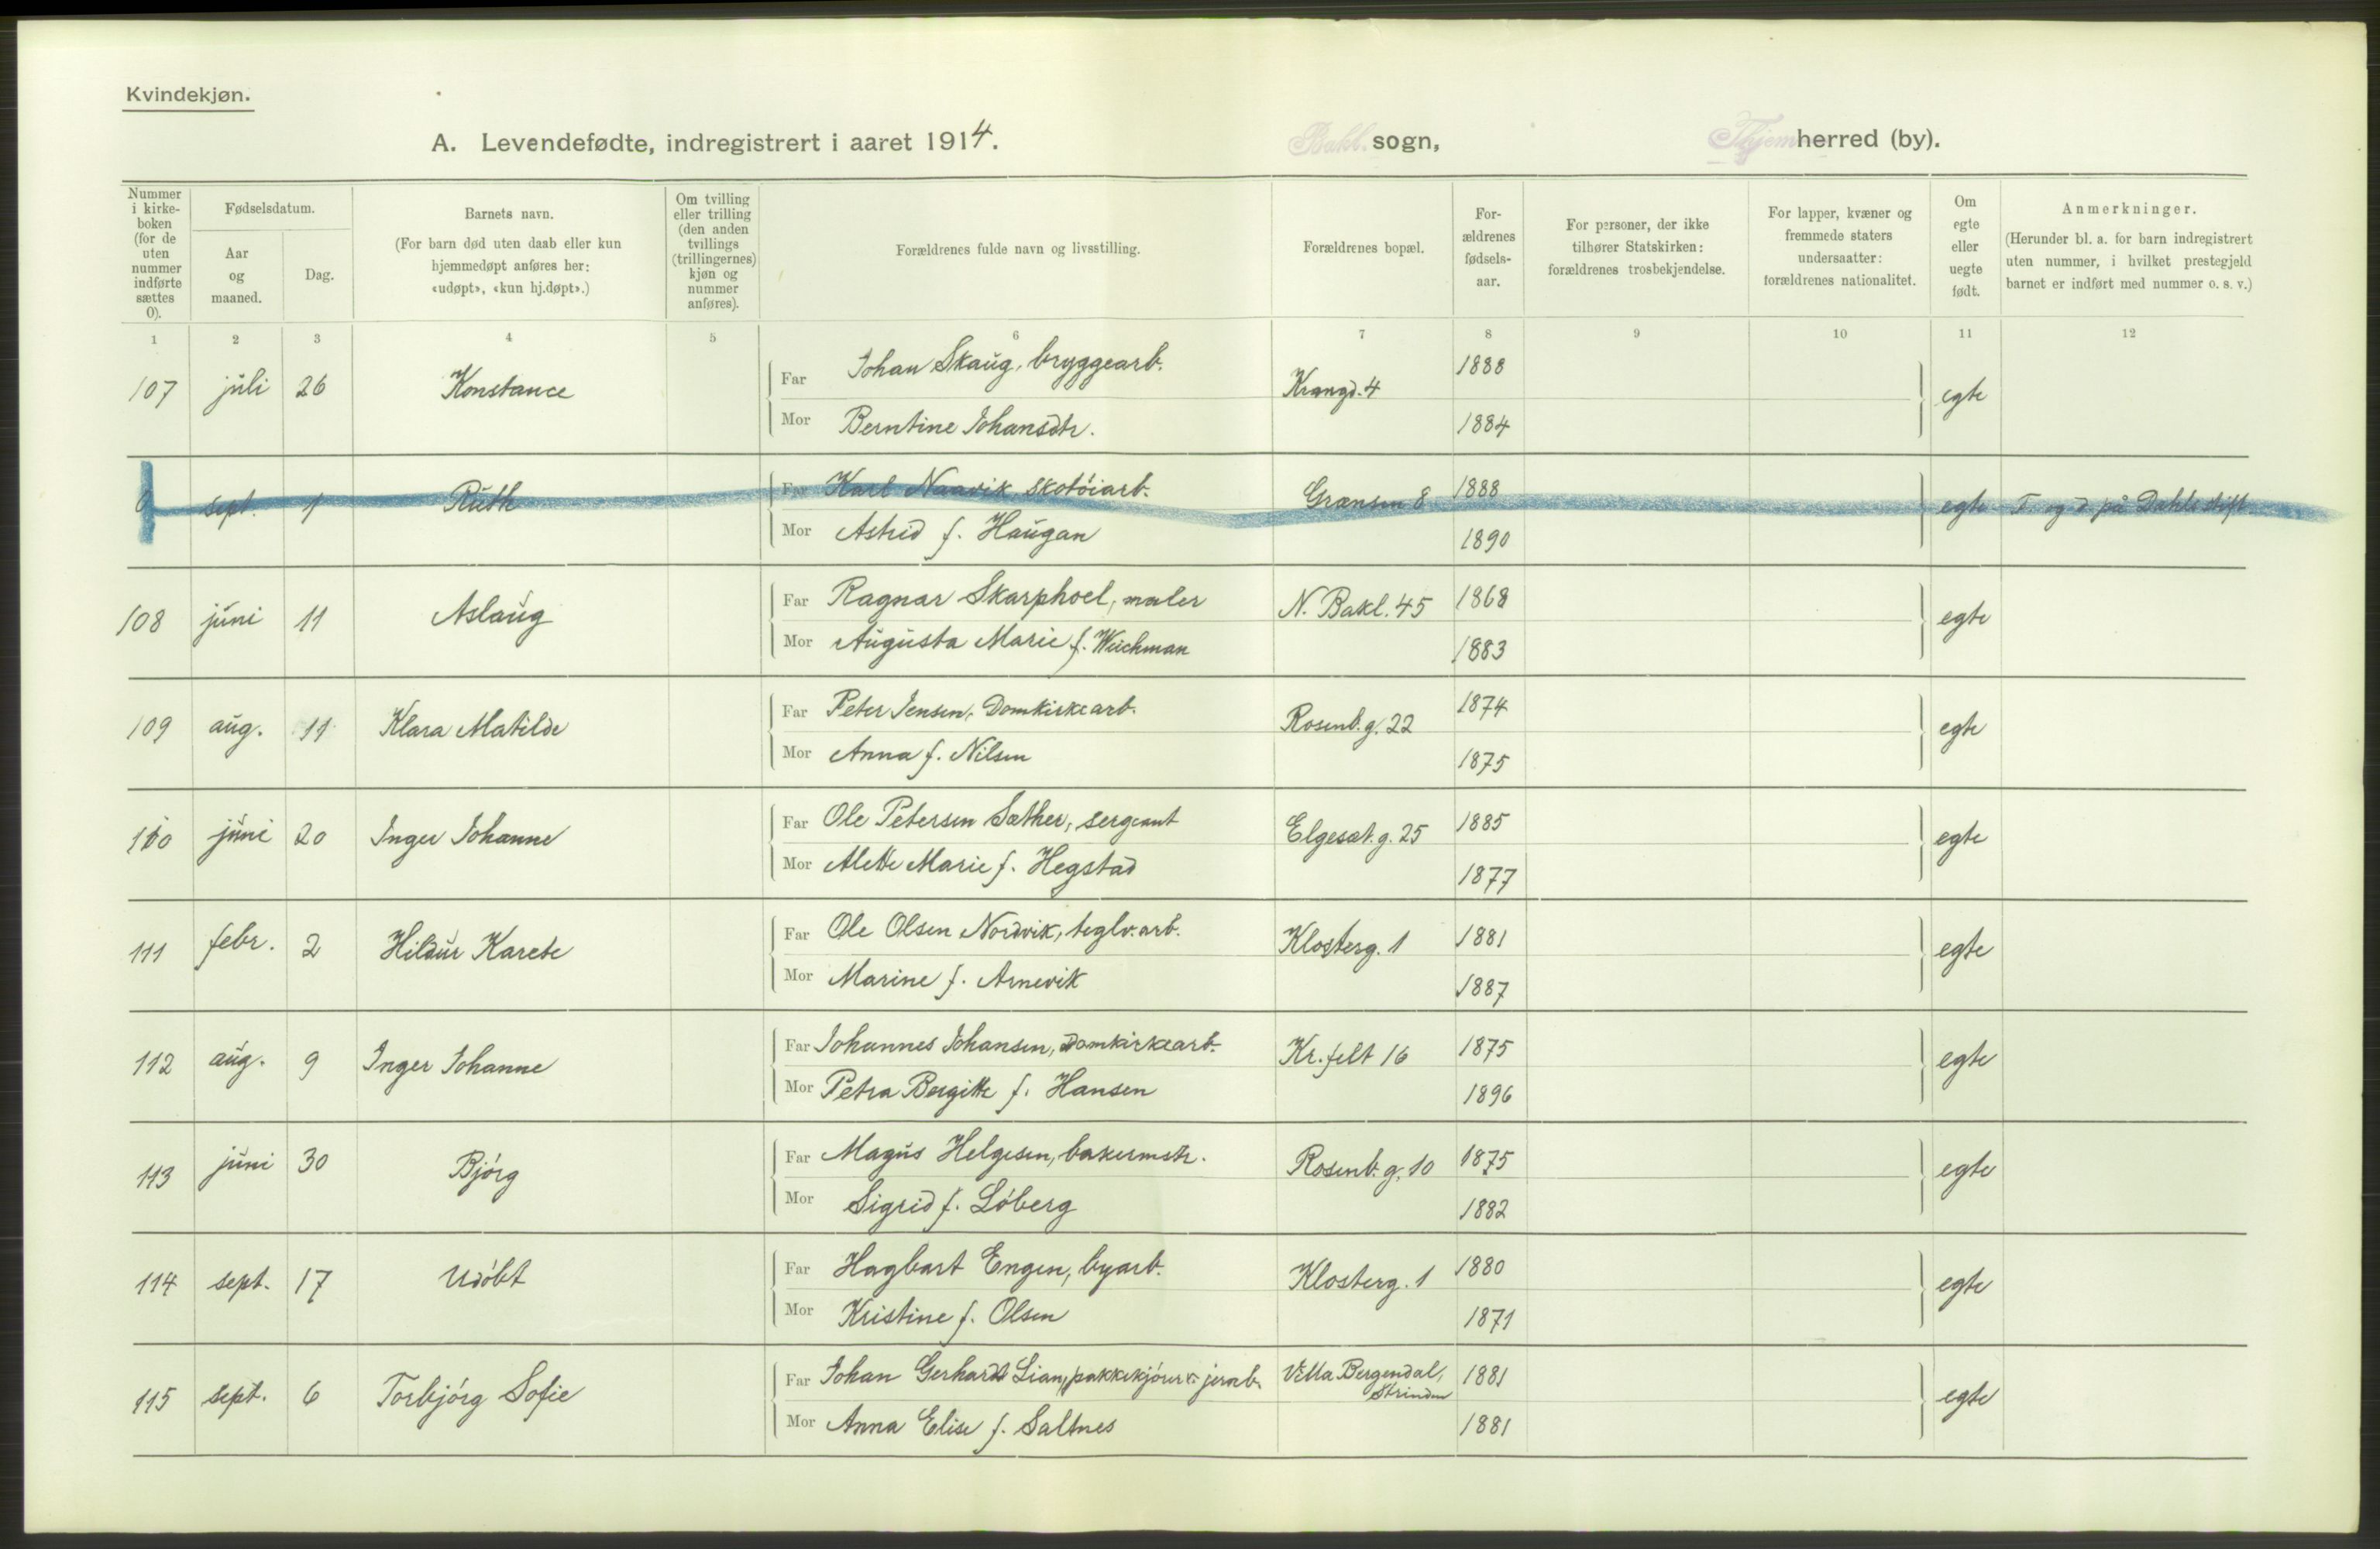 Kvindekjøn.
A. Levendefødte, indregistrert i aaret 1914. Bakl. sogn, Thjem herred (by).
Nummer i kirke-boken (for de uten nummer indførte sættes 0).
Fødselsdatum.
Aar og maaned.
Dag.
Barnets navn.
(For barn død uten daab eller kun hjemmedøpt anføres her: «udøpt», «kun hj.døpt».)
Om tvilling eller trilling (den anden tvillings (trillingernes) kjøn og nummer anføres).
Forældrenes fulde navn og livsstilling.
Forældrenes bopæl.
For-ældrenes fødsels-aar.
For personer, der ikke tilhører Statskirken: forældrenes trosbekjendelse.
For lapper, kvæner og fremmede staters undersaatter: forældrenes nationalitet.
Om egte eller uegte født.
Anmerkninger.
(Herunder bl. a. for barn indregistrert uten nummer, i hvilket prestegjeld barnet er indført med nummer o. s. v.)
1 2 3 4 5 6 7 8 9 10 11 12
107 juli 26 Konstance Far Johan Skaug, bryggearb. Krangd. 4 1888 egte
Mor Berntine Johansdtr. 1884
0 sept. 1 Ruth Far Karl Naavik skotøiarb. Grænsen 8 1888 egte F. og d. på Dahls stift.
Mor Astrid f. Haugan 1890
108 juni 11 Aslaug Far Ragnar Skarphoel, maler N. Bakl. 45 1868 egte
Mor Augusta Marie f. Weichman 1883
109 aug. 11 Klara Matilde Far Peter Jensen, Domkirkearb. Rosenb. g. 22 1874 egte
Mor Anna f. Nilsen 1875
110 juni 20 Inger Johanne Far Ole Petersen Sæther, sergeant Elgesæt. g. 25 1885 egte
Mor Alette Marie f. Hegstad 1877
111 febr. 2 Hildur Karete Far Ole Olsen Nordvik, teglv.arb. Klosterg. 1 1881 egte
Mor Marine f. Arnevik 1887
112 aug. 9 Inger Johanne Far Johannes Johansen, Domkirkearb. Kr.felt 16 1875 egte
Mor Petra Bergitte f. Hansen 1896
113 juni 30 Bjørg Far Magus Helgesen, bakermstr. Rosenb. g. 10 1875 egte
Mor Sigrid f. Løberg 1882
114 sept. 17 Udøbt Far Hagbart Engen, byarb. Klosterg. 1 1880 egte
Mor Kristine f. Olsen 1871
115 sept. 6 Torbjørg Sofie Far Johan Gerhard Lian, pakkekjører jernb. Villa Bergendal, Strinden 1881 egte
Mor Anna Elise f. Saltnes 1881